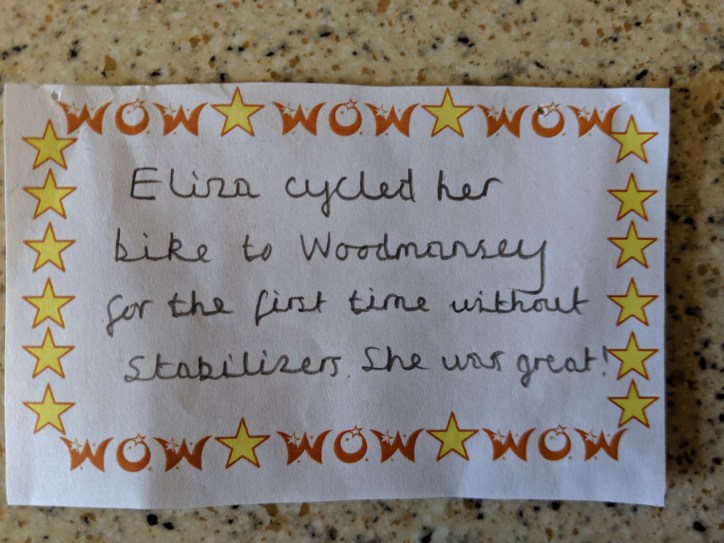 WOW WOW WOW
Eliza cycled her
bike to Woodmansey
for the first time without
Stabilizers. She was great!
WOW WOW WOW